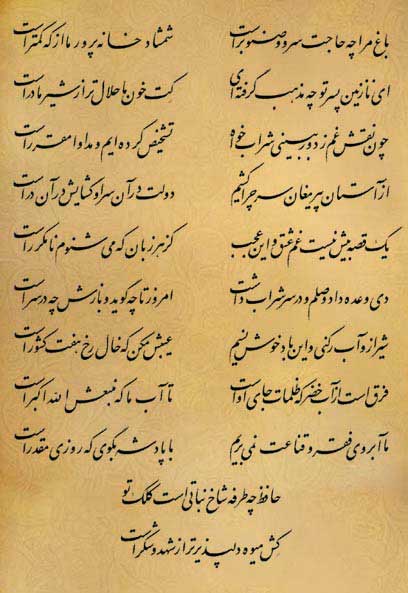 باغ مرا چه حاجت سرو و صنوبر است شمشاد خانه پرور ما از که کمتر است
ای نازنین پسر تو چه مذهب گرفته‌ای کت خون ما حلال تر از شیر مادر است
چون نقش غم ز دور ببینی شراب خواه تشخیص کرده ایم و مداوا مقرر است
از آستان پیر مغان سر چرا کشیم دولت در آن سرا و گشایش در آن در است
یک قصه بیش نیست غم عشق و این عجب کز هر زبان که می شنوم نامکرر است
دی وعده داد وصلم و در سر شراب داشت امروز تا چه گوید و بازش چه در سر است
شیراز و آب رکنی و این باد خوش نسیم عیبش مکن که خال رخ هفت کشور است
فرق است از آب خضر که ظلمات جای اوست تا آب ما که منبعش الله اکبر است
ما آبروی فقر و قناعت نمی بریم با پادشه بگوی که روزی مقدر است
حافظ چه طرفه شاخ نباتی است کلک تو
کش میوه دلپذیرتر از شهد و شکر است